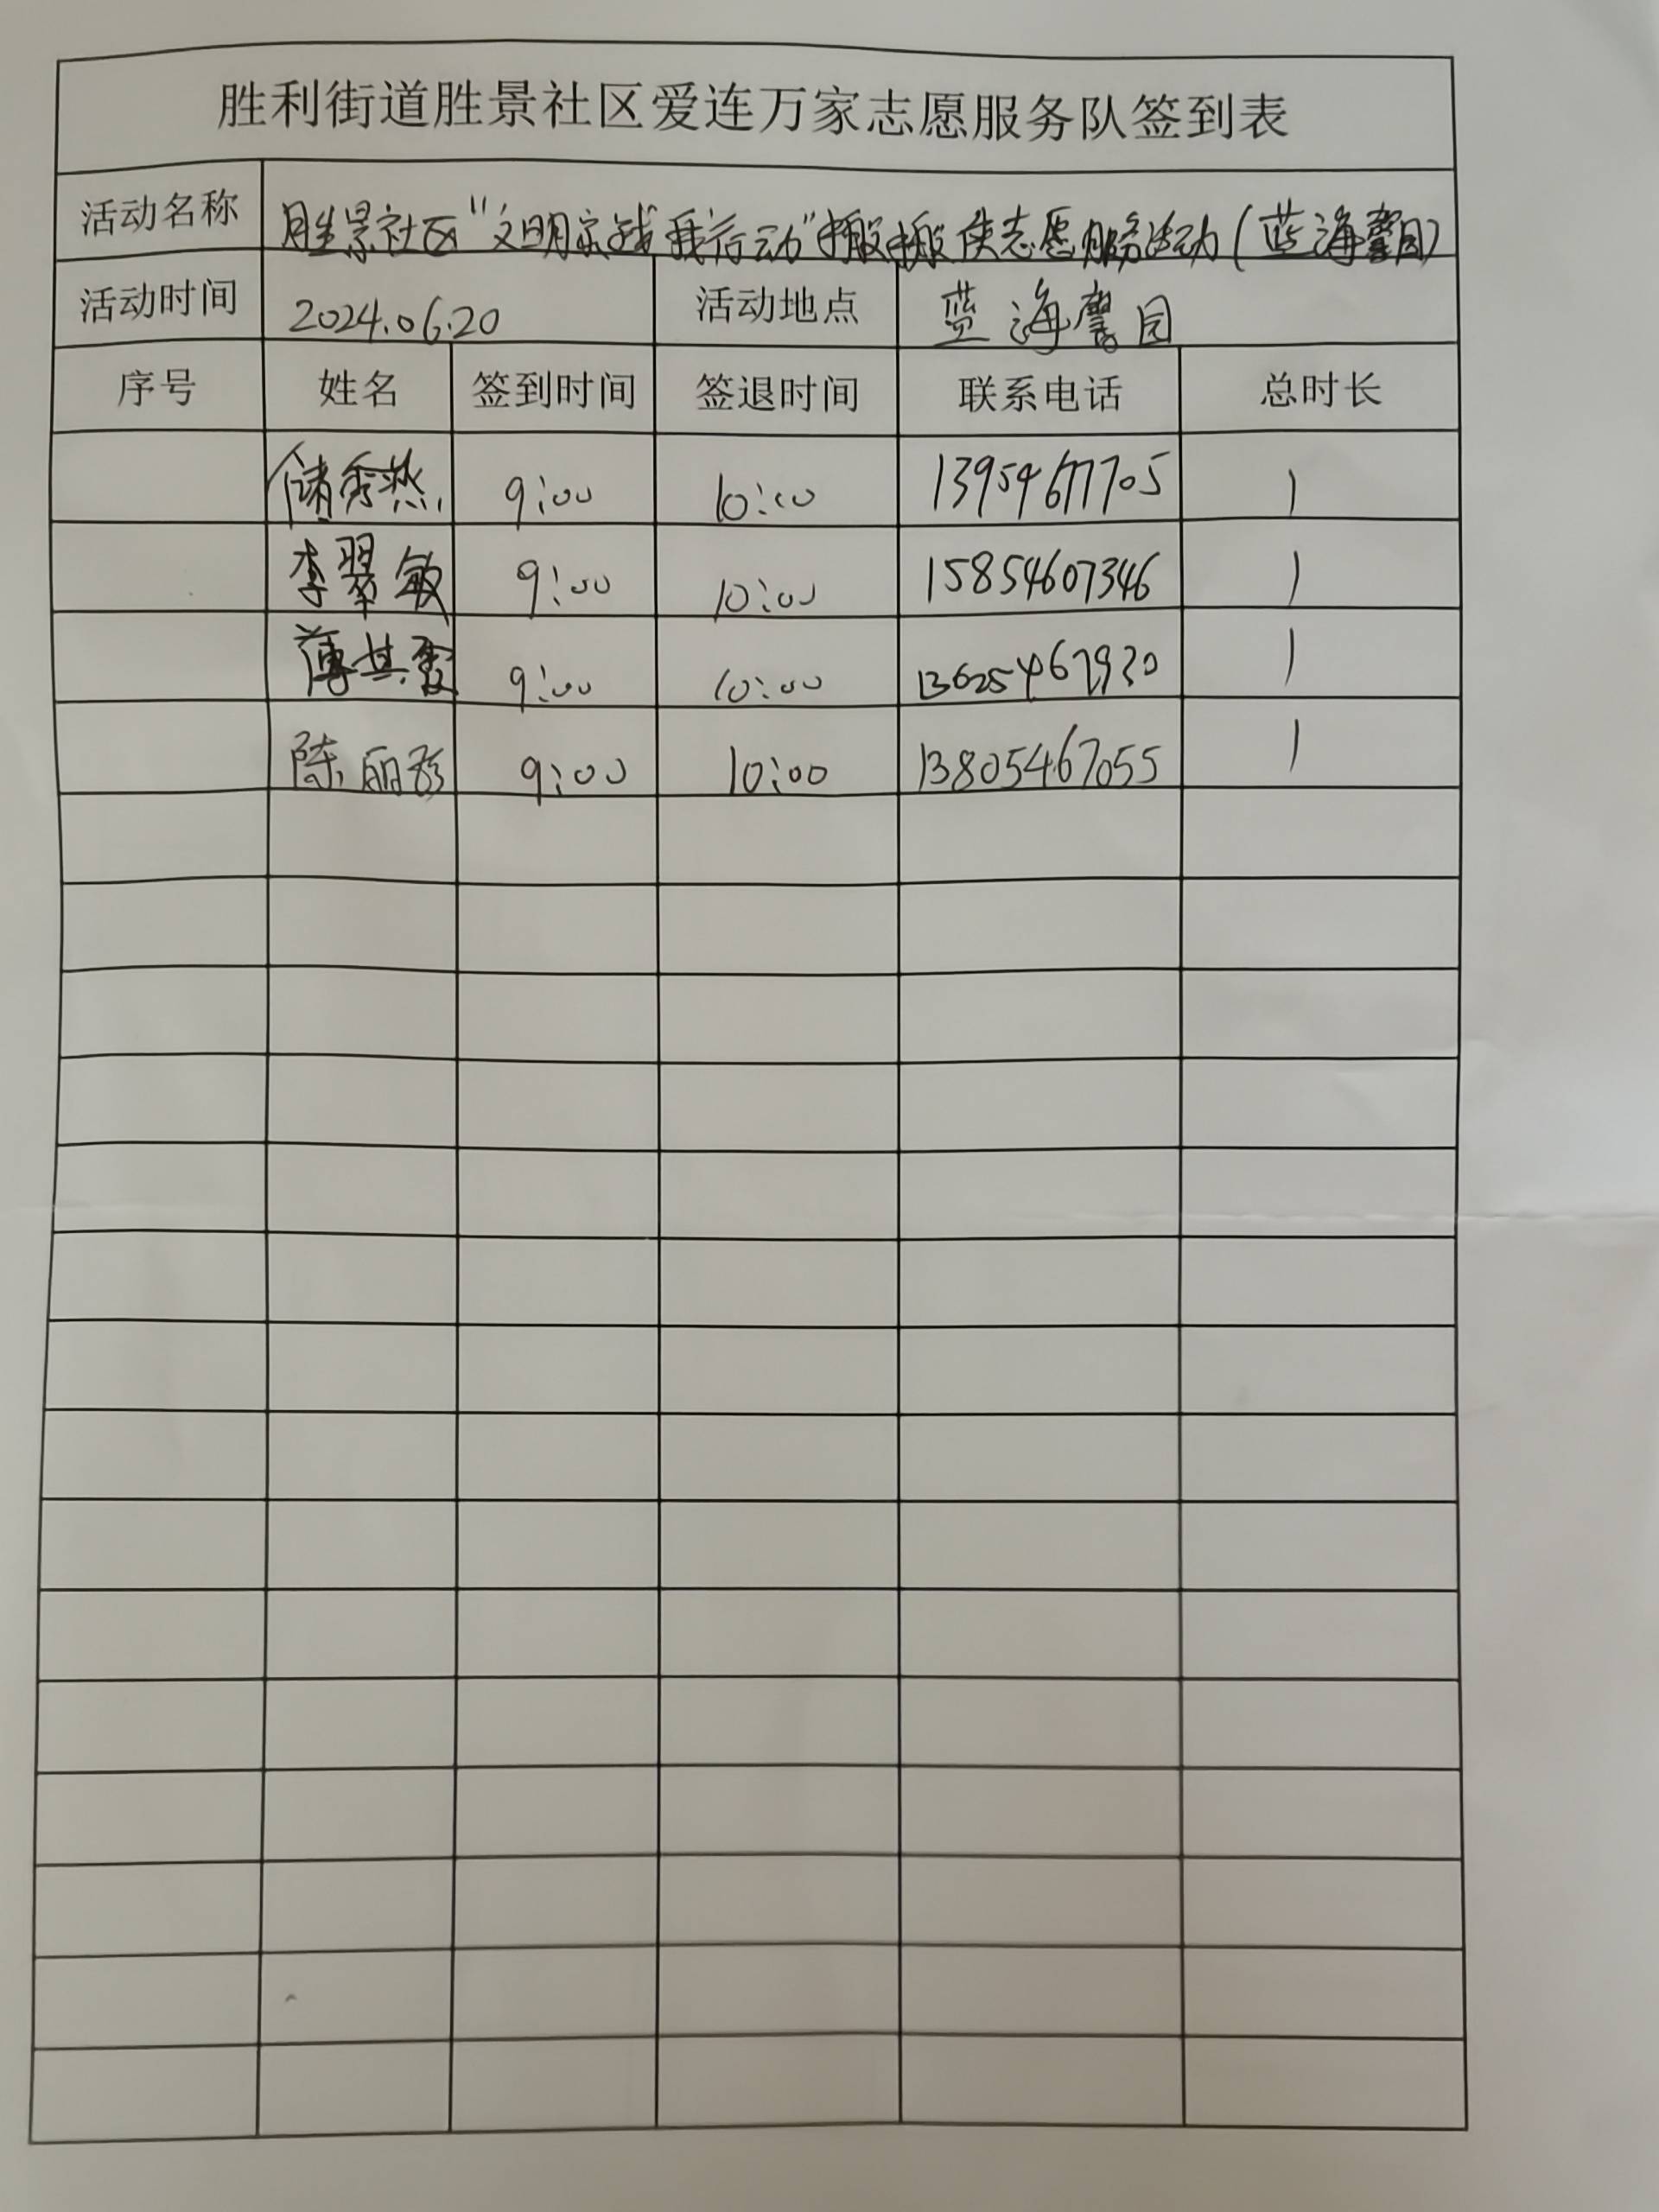 胜利街道胜景社区爱连万家志愿服务队签到表
活动名称 胜景社区“文明实践我行动”搬搬侠志愿服务活动(蓝海馨园)
活动时间 2024.06.20 活动地点 蓝海馨园
序号 姓名 签到时间 签退时间 联系电话 总时长
储秀燕 9:00 10:00 13954677705 1
李翠敏 9:00 10:00 15854607346 1
薄其 9:00 10:00 1
陈丽 9:00 10:00 13805467055 1